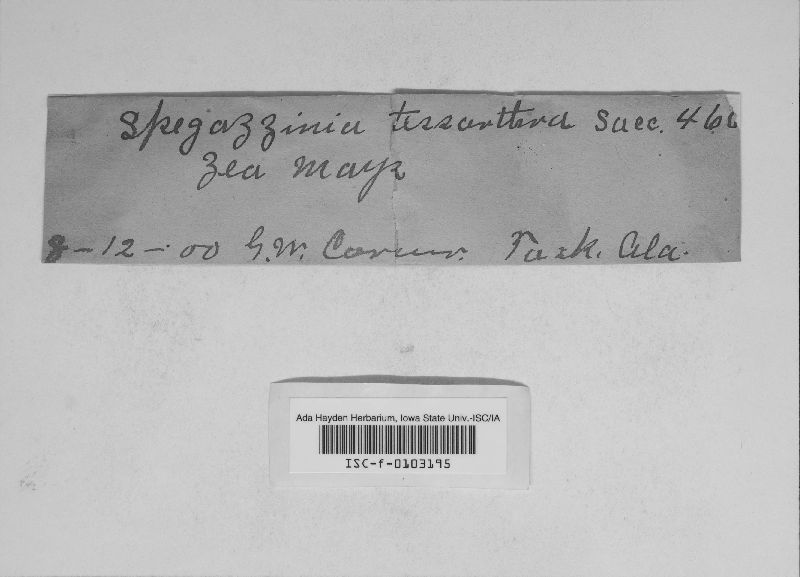 Spegazzinia tessarthra Sacc. 466
Zea mays
8-12-00 G.W. Carver. Tusk. Ala.
Ada Hayden Herbarium, Iowa State Univ.-ISC/IA
ISC-f-0103195